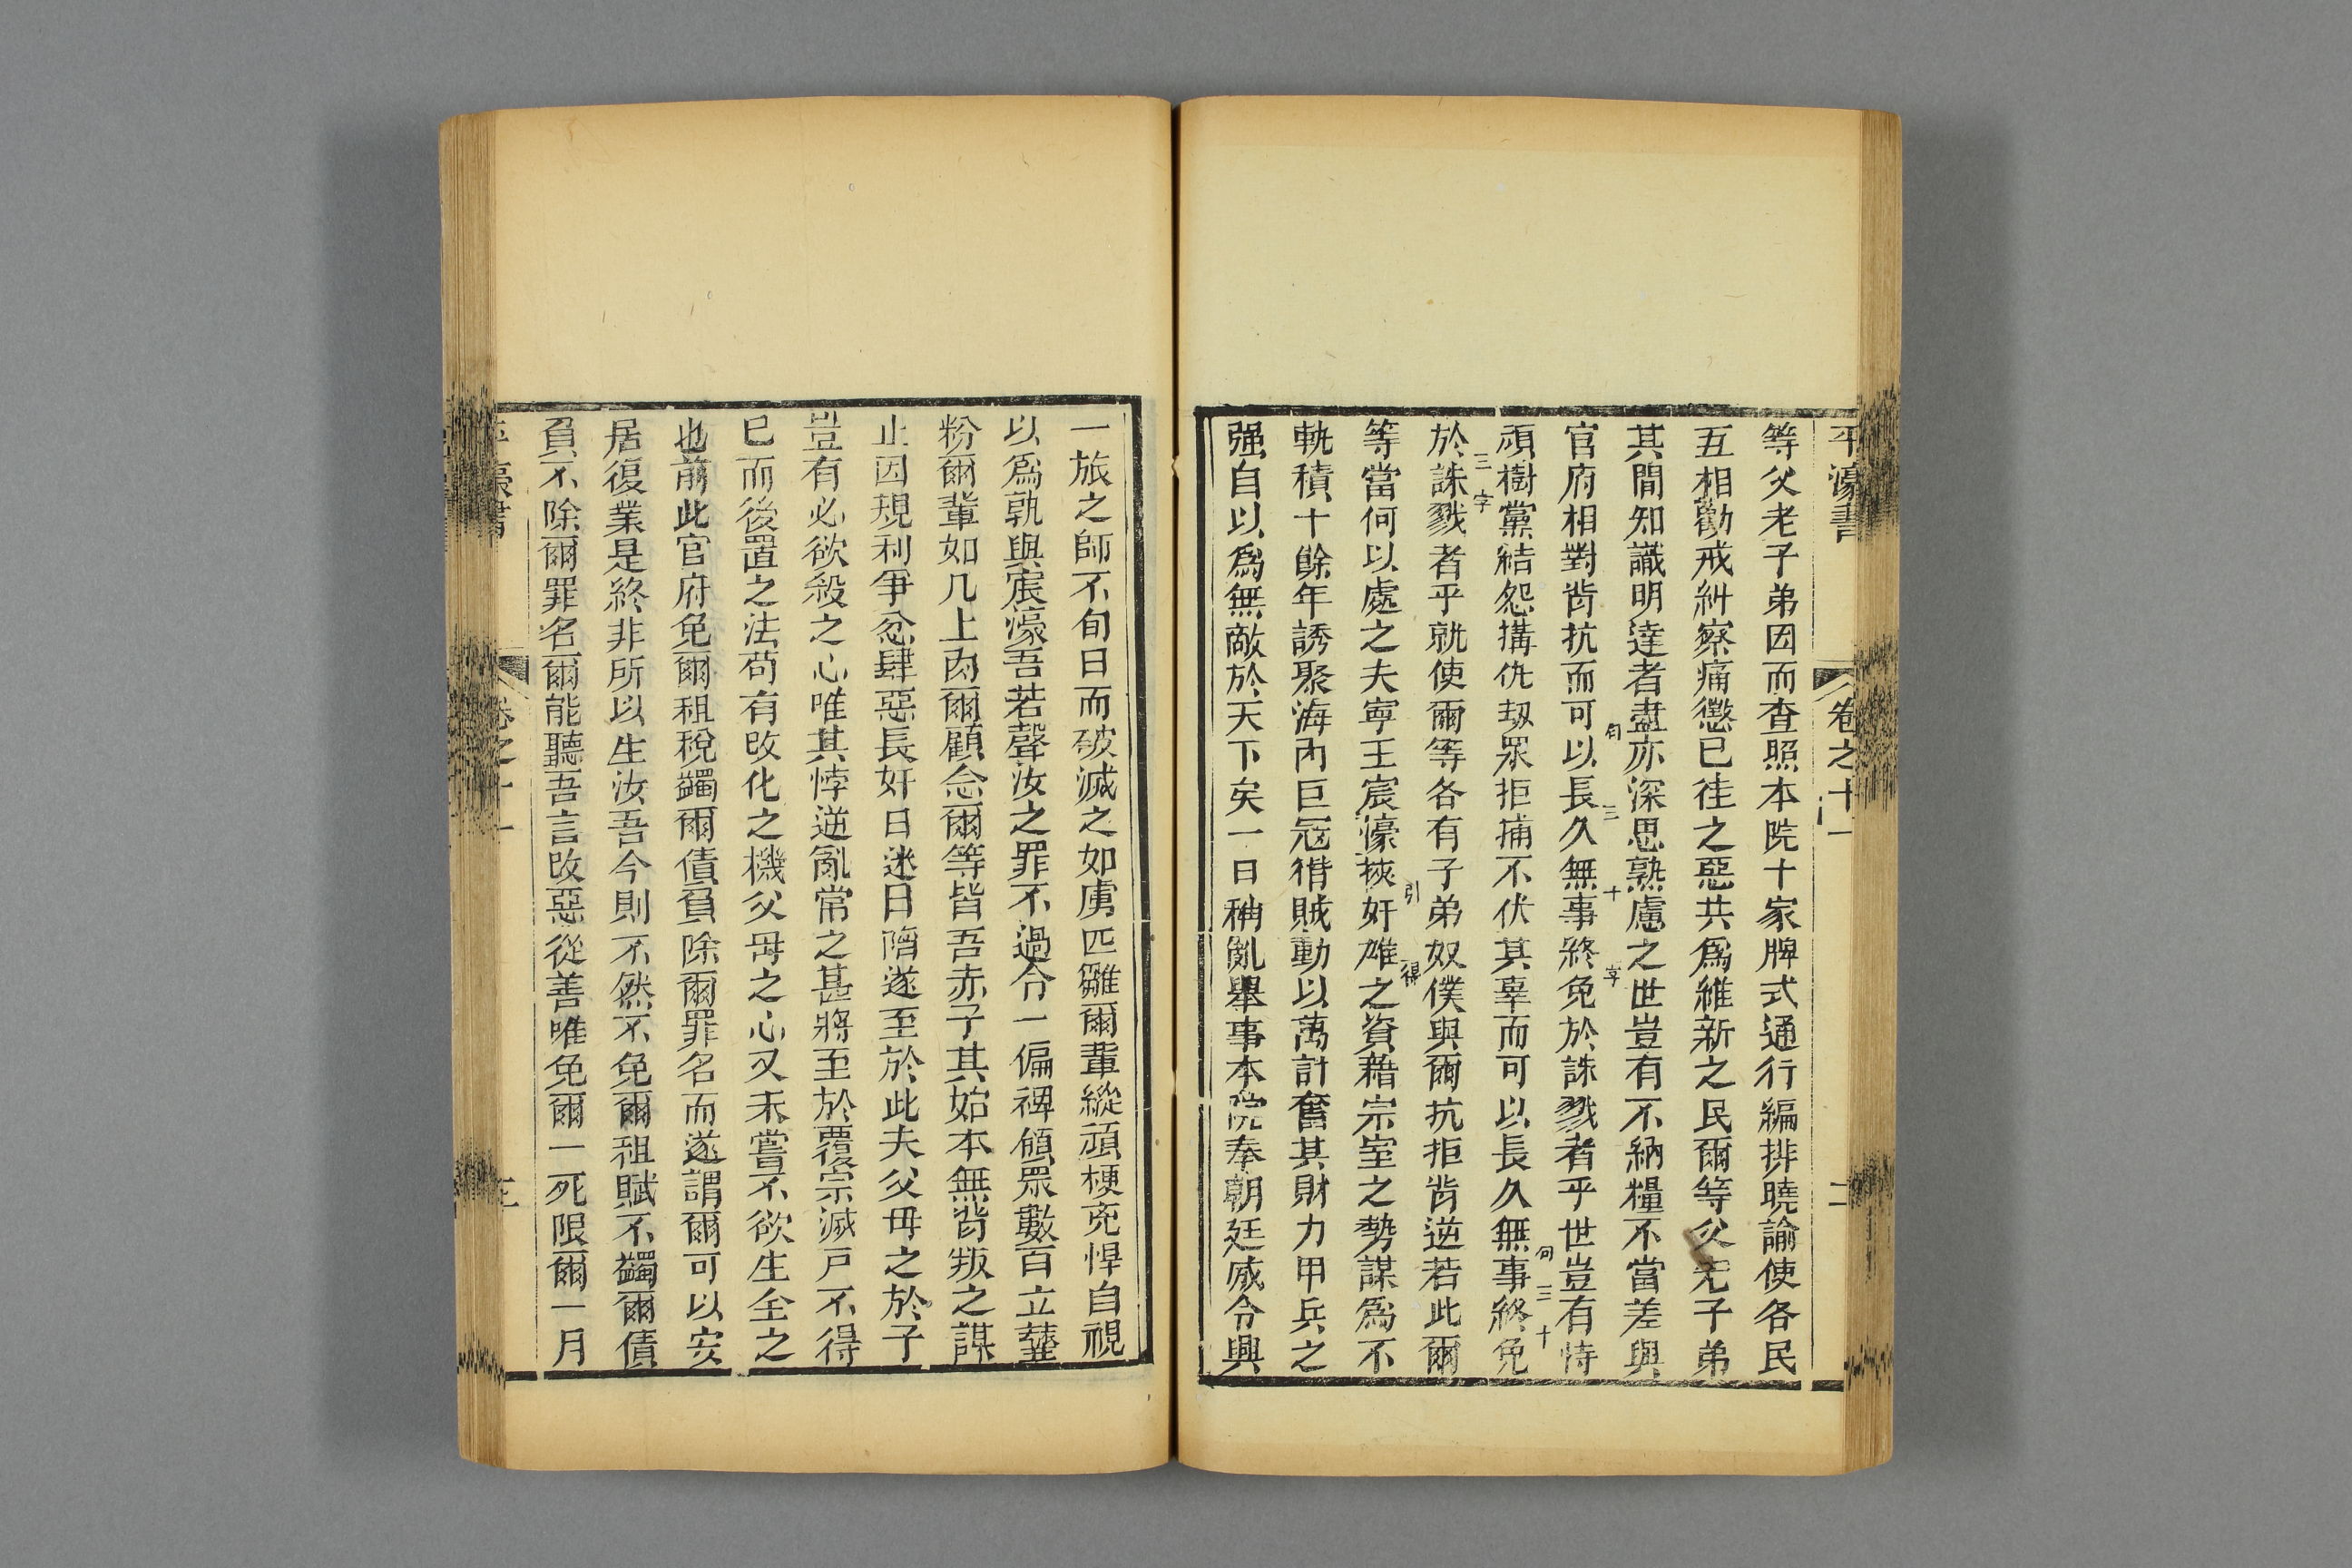 平濠書　卷之十一　二
等父老子弟因而查照本院十家牌式通行編排曉諭使各民
五相勸戒糾察痛懲已徃之惡共爲維新之民爾等父兄子弟
其間知識明達者盡亦深思熟慮之世豈有不納糧不當差與
官府相對背抗而可以長久無事終免於誅戮者乎世豈有恃
句三十字
頑樹黨結怨搆仇刼眾拒捕不伏其辜而可以長久無事終免
句三十
於誅戮者乎就使爾等各有子弟奴僕與爾抗拒背逆若此爾
三字
等當何以處之夫寧王宸濠挾奸雄之資藉宗室之勢謀爲不
引得
軌積十餘年誘聚海內巨寇猾賊動以萬計奮其財力甲兵之
强自以爲無敵於天下矣一日稱亂舉事本院奉朝廷威令興
一旅之師不旬日而破滅之如虜匹雛爾輩縱頑梗兇悍自視
以爲孰與宸濠吾若聲汝之罪不過令一偏裨領眾數百立虀
粉爾輩如几上肉爾顧念爾等皆吾赤子其始本無背叛之謀
止因規利爭忿肆惡長奸日迷日陷遂至於此夫父母之於子
豈有必欲殺之心唯其悖逆亂常之甚將至於覆宗滅戶不得
已而後置之法苟有改化之機父母之心又未嘗不欲生全之
也前此官府免爾租稅蠲爾債負除爾罪名而遂謂爾可以安
居復業是終非所以生汝吾今則不然不免爾租賦不蠲爾債
負不除爾罪名爾能聽吾言改惡從善唯免爾一死限爾一月
平濠書　卷之十一　三